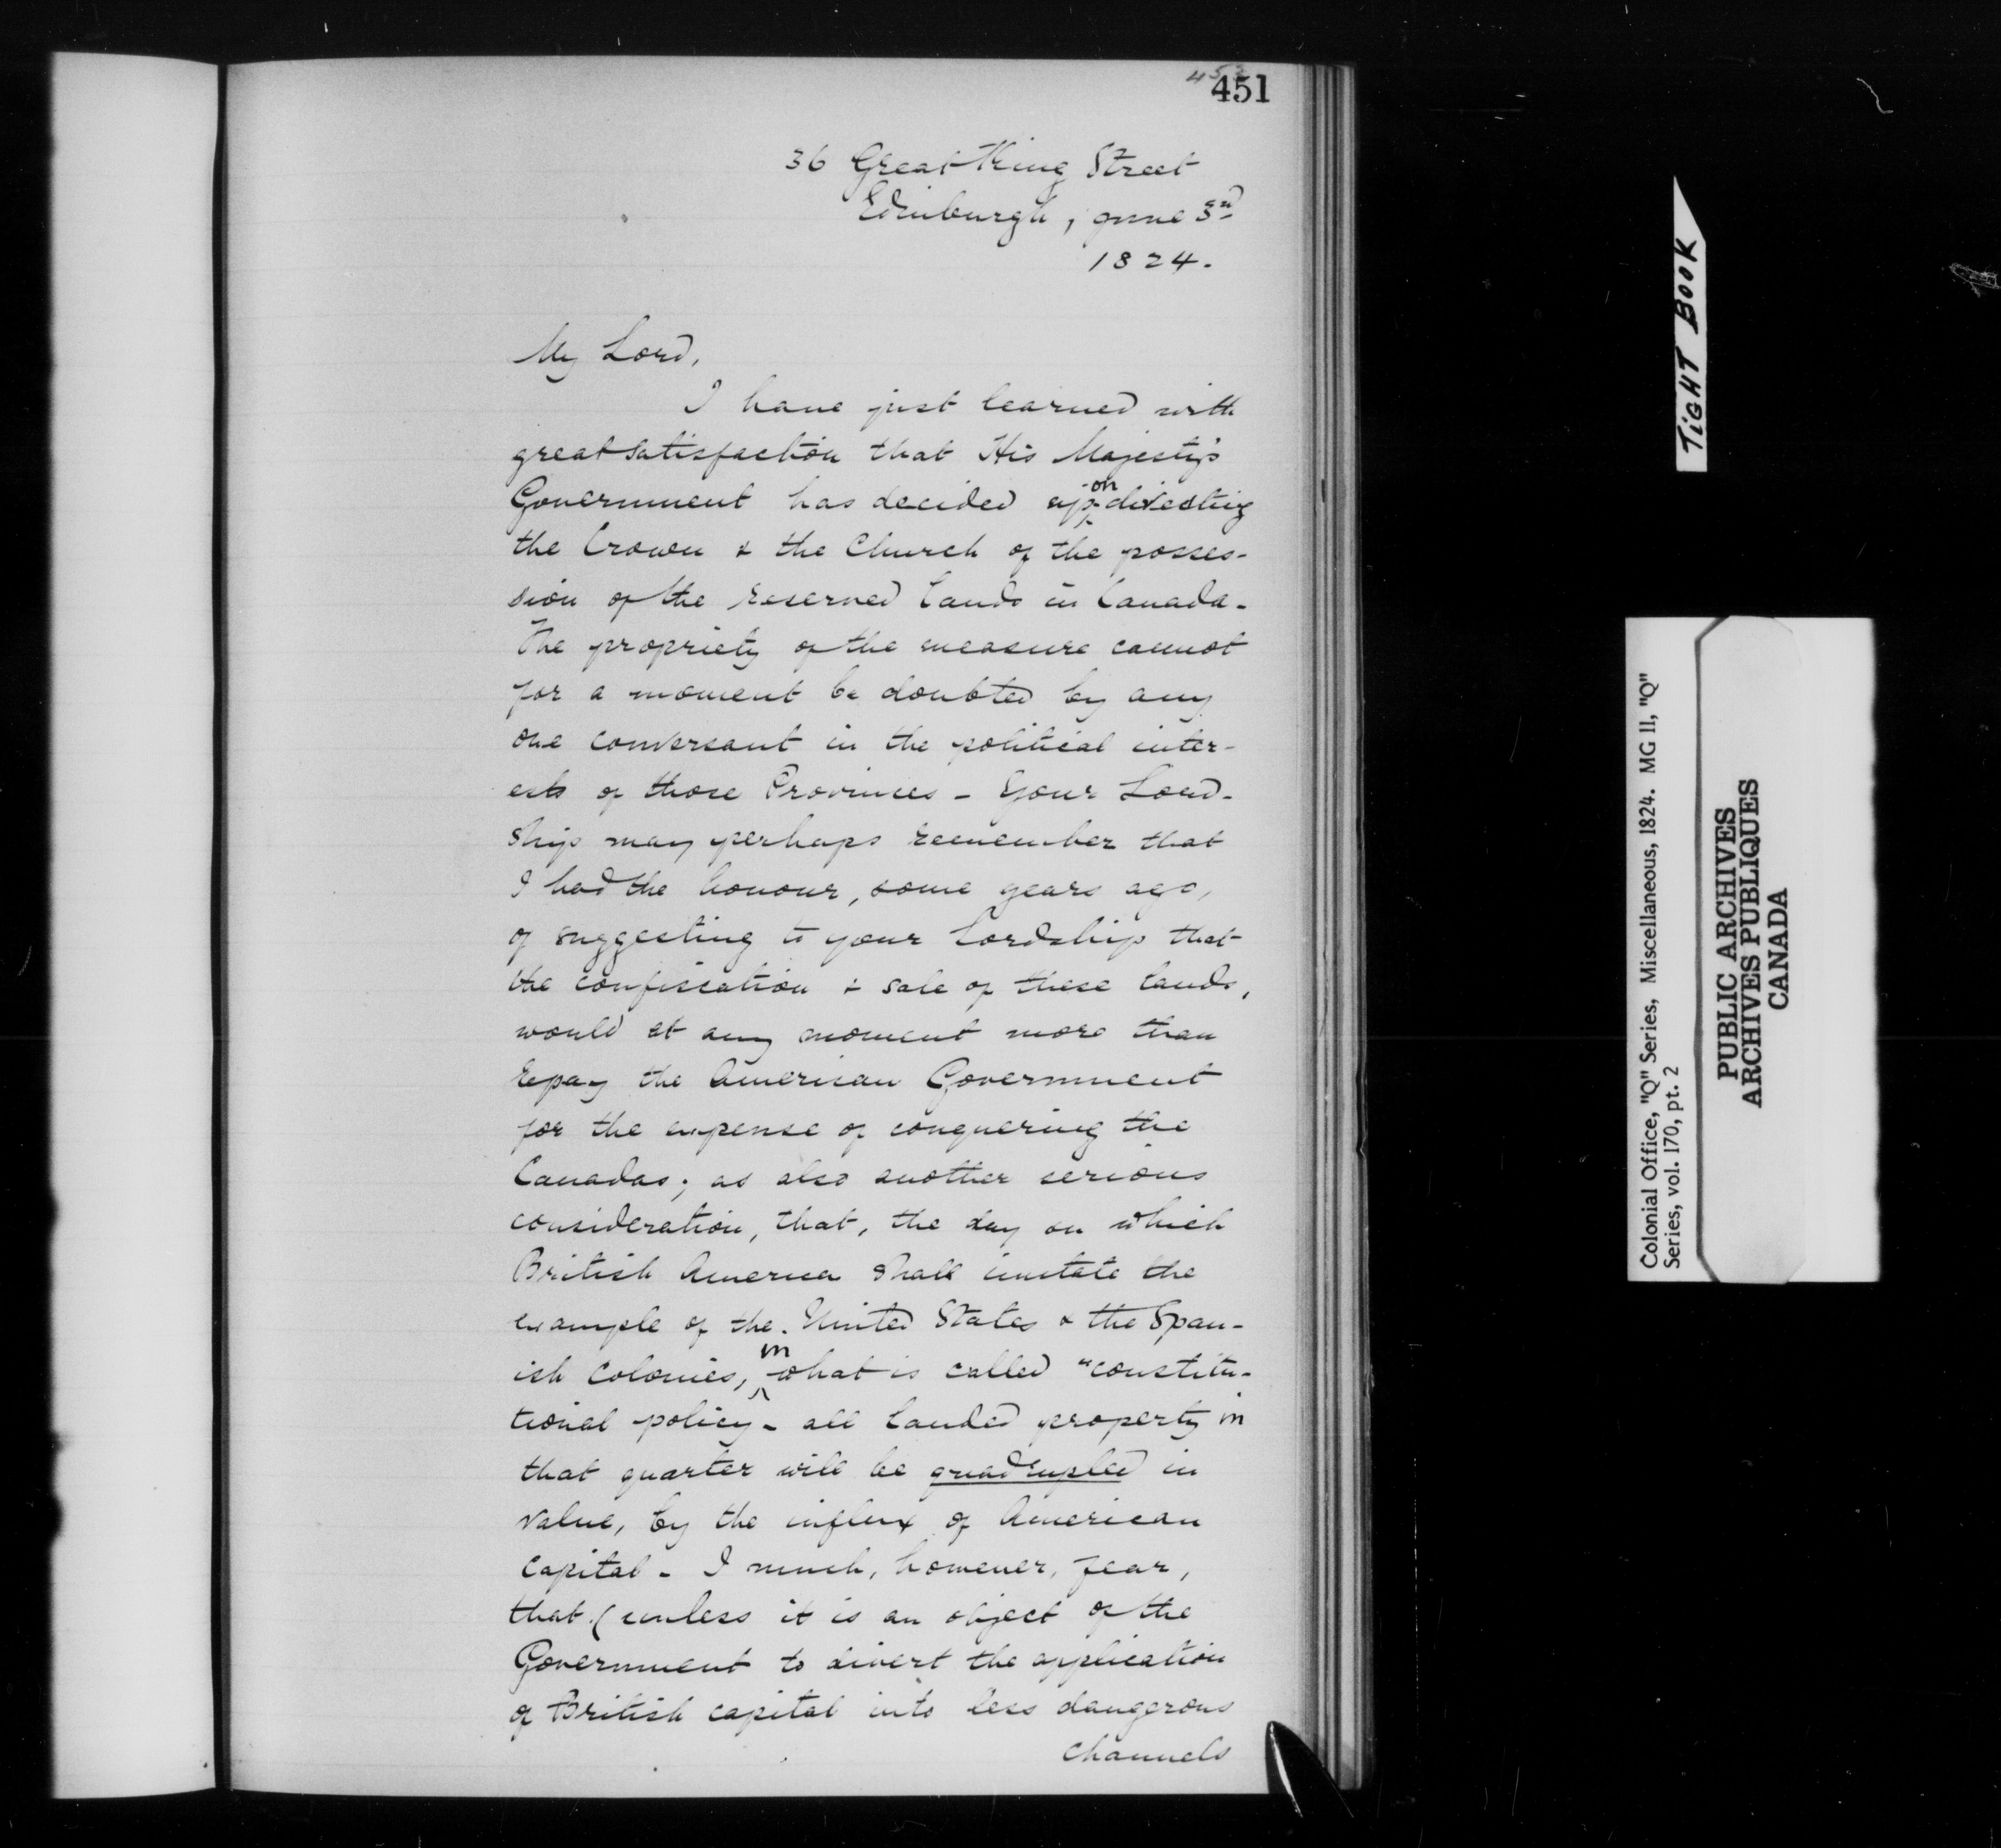 453
451
36 Great King Street
Edinburgh, June 3rd
1824.
My Lord,
I have just learned with
great satisfaction that His Majesty's
Government has decided up^on divesting
the Crown & the Church of the posses-
sion of the reserved lands in Canada.
The propriety of the measure cannot
for a moment be doubted by any
one conversant in the political inter-
ests of those Provinces - Your Lord-
ship may perhaps remember that
I had the honour, some years ago,
of suggesting to your Lordship that
the confiscation & sale of these lands,
would at any moment more than
repay the American Government
for the expense of conquering the
Canadas; as also another serious
consideration, that, the day on which
British America shall imitate the
example of the United States & the Span-
ish Colonies, ^in what is called "constitu-
tional policy - all landed property in
that quarter will be quadrupled in
value, by the influx of American
capital - I much, however, fear,
that (unless it is an object of the
Government to divert the application
of British capital into less dangerous
channels
TIGHT BOOK
Colonial Office, "Q" Series, Miscellaneous, 1824. MG 11, "Q"
Series, vol. 170, pt. 2
PUBLIC ARCHIVES
ARCHIVES PUBLIQUES
CANADA